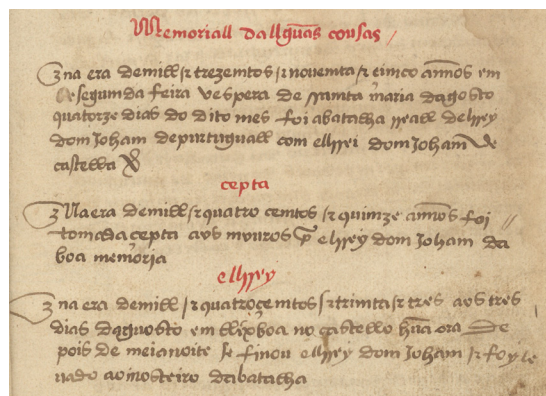 Memoriall dallgũas cousas /
Na era de mill & trezemtos & novemta & cimco annos em
segumda feira vespera de samta maria dagosto
quatorze dias do dito mes foi abatalha reall delrrey
dom Joham de purtuguall com ellrrei dom Joham de
castella
cepta
Na era de mill & quatro cemtos & quimze annos foi
tomada cepta aos mouros p ellrrey dom Joham da
boa memoria
ellrrey
na era de mill & quatro cemtos & trimta & tres aos tres
dias dagosto em lixboa no castello hũa ora de
pois de meia noite se finou ellrrey dom Joham & foy le
vado ao mosteiro da batalha